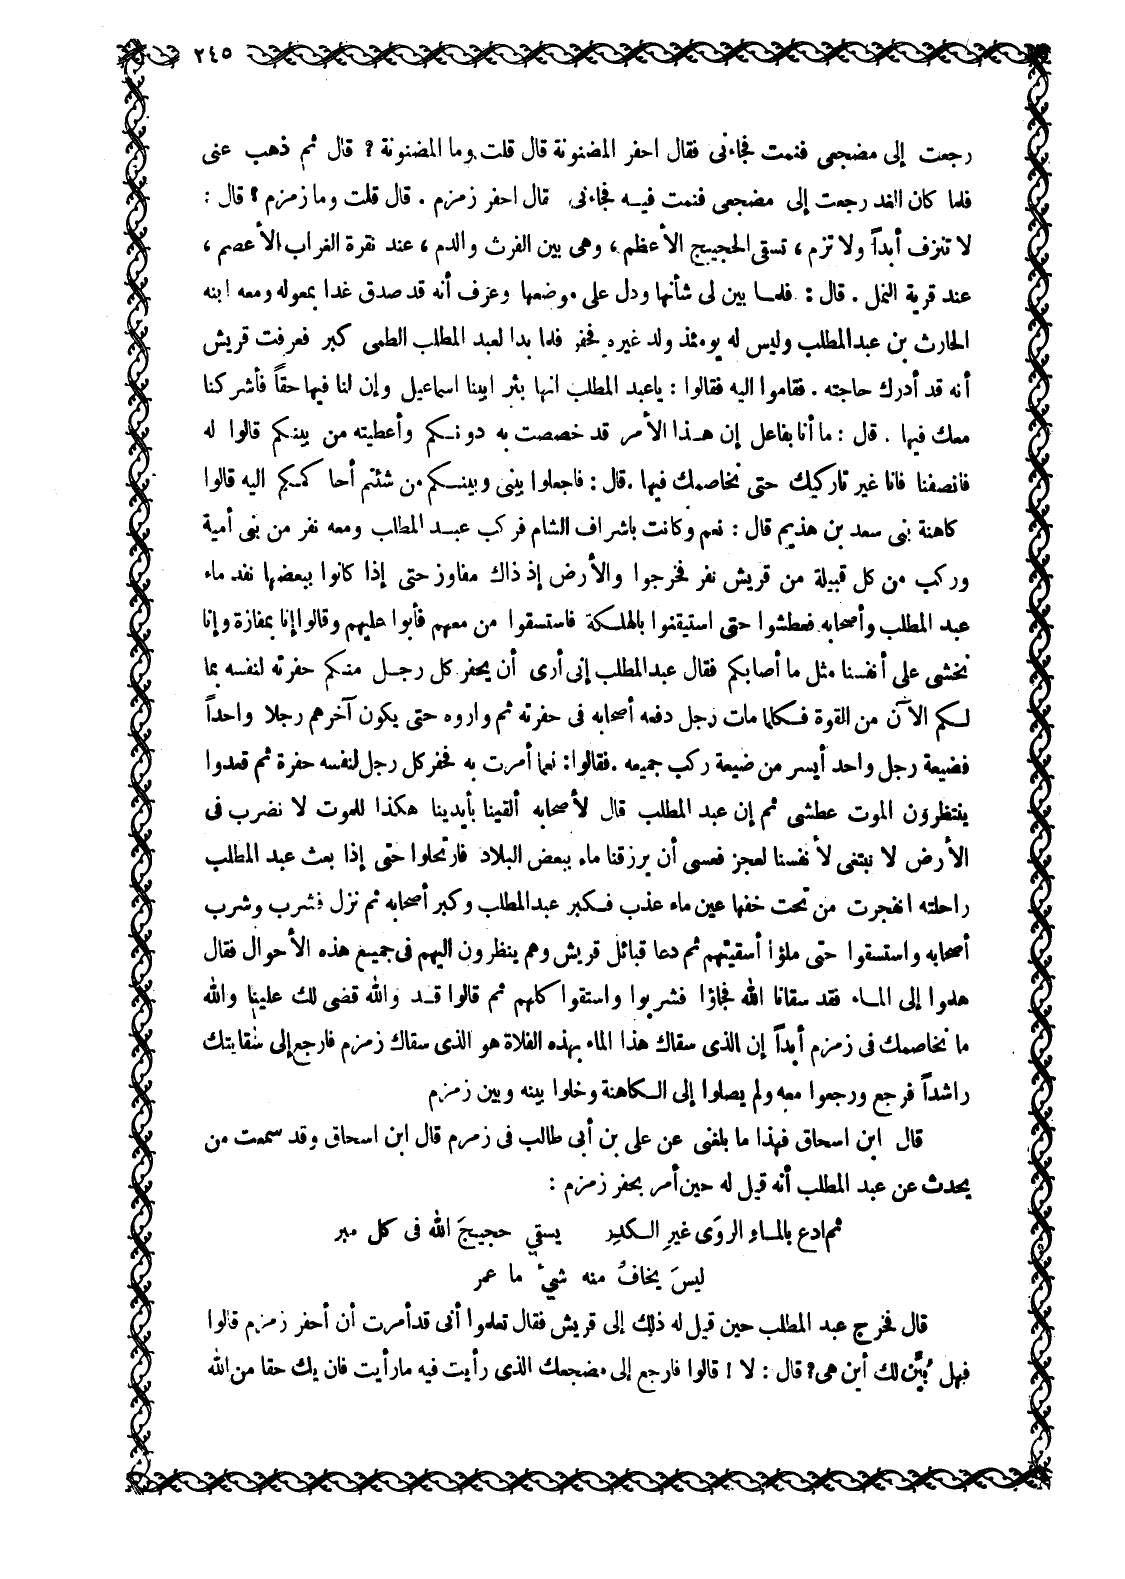 ٢٤٥
رجعت إلى مضجعى فنمت فجاءنى فقال احفر المضنونة قال قلت وما المضنونة ? قال ثم ذهب عنى
فلما كان الغد رجعت إلى مضجعى فنمت فيه فجاءنى قال احفر زمزم . قال قلت وما زمزم ? قال :
لا تنزف أبداً ولا تزم ، تسقى الحجيج الأعظم ، وهى بين الفرث والدم ، عند نقرة الغراب الأعصم ،
عند قرية النمل . قال : فلما بين لى شأنها ودل على موضعها وعرف أنه قد صدق غدا بمعوله ومعه ابنه
الحارث بن عبدالمطلب وليس له يومئذ ولد غيره فحفر فلما بدا لعبد المطلب الطمى كبر فعرفت قريش
أنه قد أدرك حاجته . فقاموا اليه فقالوا : ياعبد المطلب انها بئر ابينا اسماعيل وإن لنا فيها حقاً فأشركنا
معك فيها . قال : ما أنا بفاعل إن هذا الأمر قد خصصت به دونكم وأعطيته من بينكم قالوا له
فانصفنا فانا غير تاركيك حتى نخاصمك فيها .قال : فاجعلوا بينى وبينكم من شئتم أحاكمكم اليه قالوا
كاهنة بنى سعد بن هذيم قال : نعم وكانت باشراف الشام فركب عبد المطلب ومعه نفر من بنى أمية
وركب من كل قبيلة من قريش نفر فخرجوا والأرض إذ ذاك مفاوز حتى إذا كانوا ببعضها نفد ماء
عبد المطلب وأصحابه فعطشوا حتى استيقنوا بالهلكة فاستسقوا من معهم فأبوا عليهم وقالوا إنا بمفازة وإنا
نخشى على أنفسنا مثل ما أصابكم فقال عبدالمطلب إنى أرى أن يحفر كل رجل منكم حفرته لنفسه بما
لكم الآن من القوة فكلما مات رجل دفعه أصحابه فى حفرته ثم واروه حتى يكون آخرهم رجلا واحداً
فضيعة رجل واحد أيسر من ضيعة ركب جميعه .فقالوا: نعما أمرت به فحفر كل رجل لنفسه حفرة ثم قعدوا
ينتظرون الموت عطشى ثم إن عبد المطلب قال لأصحابه ألقينا بأيدينا هكذا للموت لا نضرب فى
الأرض لا نبتغى لأنفسنا لعجز فعسى أن يرزقنا ماء ببعض البلاد فارتحلوا حتى إذا بعث عبد المطلب
راحلته انفجرت من تحت خفها عين ماء عذب فكبر عبدالمطلب وكبر أصحابه ثم نزل فشرب وشرب
أصحابه واستسقوا حتى ملؤا أسقيتهم ثم دعا قبائل قريش وهم ينظرون اليهم فى جميع هذه الأحوال فقال
هلموا إلى الماء فقد سقانا الله فجاؤا فشربوا واستقوا كلهم ثم قالوا قد والله قضى لك علينا والله
ما نخاصمك فى زمزم أبداً إن الذى سقاك هذا الماء بهذه الفلاة هو الذى سقاك زمزم فارجع إلى سقايتك
راشداً فرجع ورجعوا معه ولم يصلوا إلى الكاهنة وخلوا بينه وبين زمزم
قال ابن اسحاق فهذا ما بلغنى عن على بن أبى طالب فى زمزم قال ابن اسحاق وقد سمعت من
يحدث عن عبد المطلب أنه قيل له حين أمر بحفر زمزم :
ثم ادع بالماءِ الروَى غيرِ الكدِر يسقي حجيجَ الله فى كل مبر
ليسَ يخافُ منه شيءٌ ما عمر
قال فخرج عبد المطلب حين قيل له ذلك إلى قريش فقال تعلموا أنى قد أمرت أن أحفر زمزم قالوا
فهل بُيّن لك أين هى? قال : لا ! قالوا فارجع إلى مضجعك الذى رأيت فيه ما رأيت فان يك حقا من الله